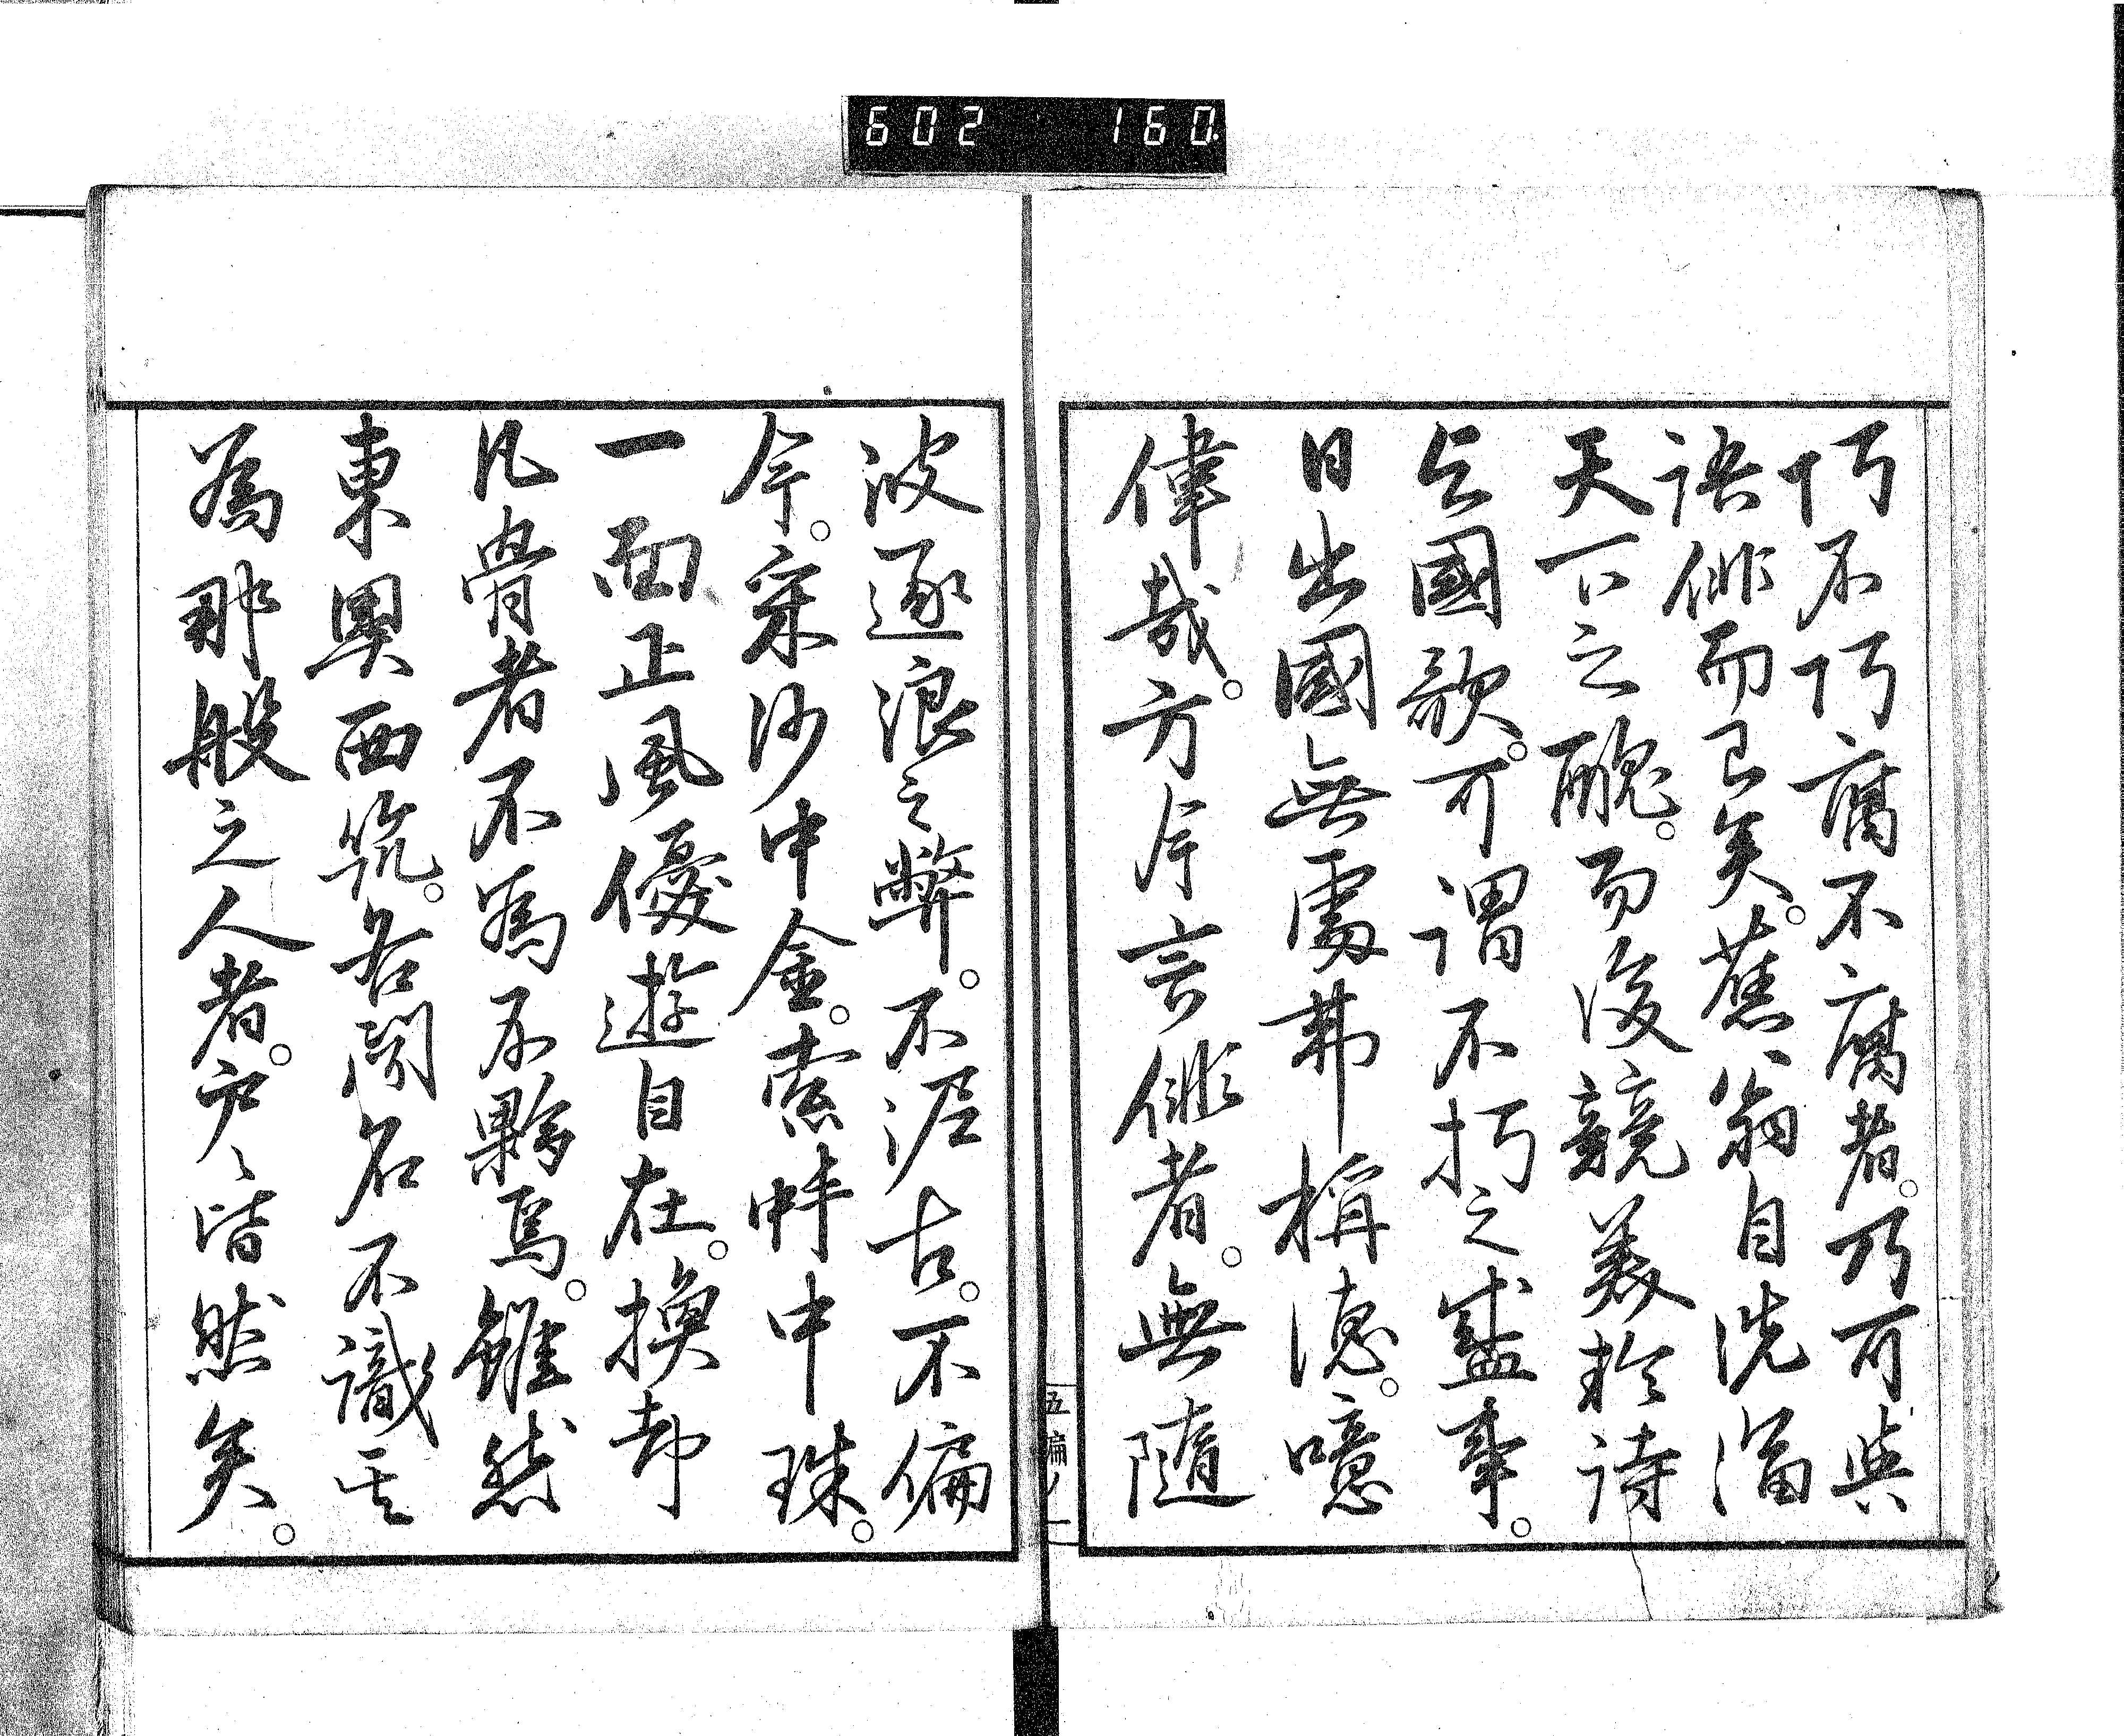 602 160
巧不巧腐不腐者。巧可與
語俳而已矣。蕉翁自洗滔
天下之醜。而後競美於詩
與國歌。可謂不朽之盛事。
日出國無處弗稱德。噫
偉哉。方今言俳者。無隨
五編ノ一
波逐浪之弊。不泥古。不偏
今。寀沙中金。索蚌中珠。
一面正風優遊自在。換却
凡骨者不為不夥焉。雖然
東奧西筑。各聞名不識其
為那般之人者。戶〻皆然矣。